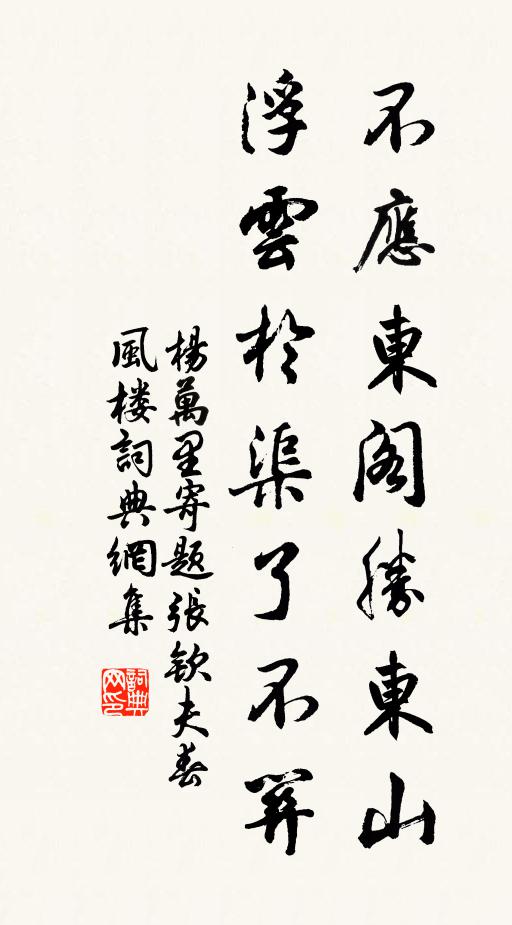 不應東閣勝東山
浮雲於渠了不關
楊萬里寄題張欽夫春
風楼詞典網集
詞典网印